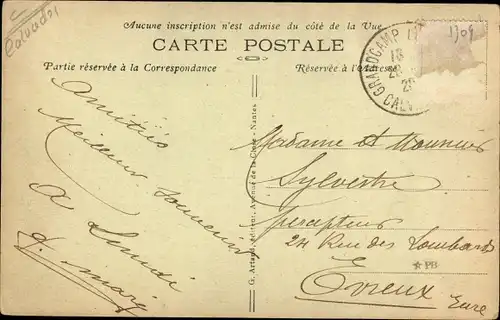 Calvados
Aucune inscription n'est admise du côté de la Vue
CARTE POSTALE
Partie réservée à la Correspondance
Réservée à l'adresse
1309
GRANDCAMP
CALV
Amitiés
Meilleur souvenir
G. Artaud, éditeur, Avenue de la Close, Nantes
Madame et Monsieur
Sylvestre
Percepteur
24 Rue des Lombards
Evreux
Eure
PB